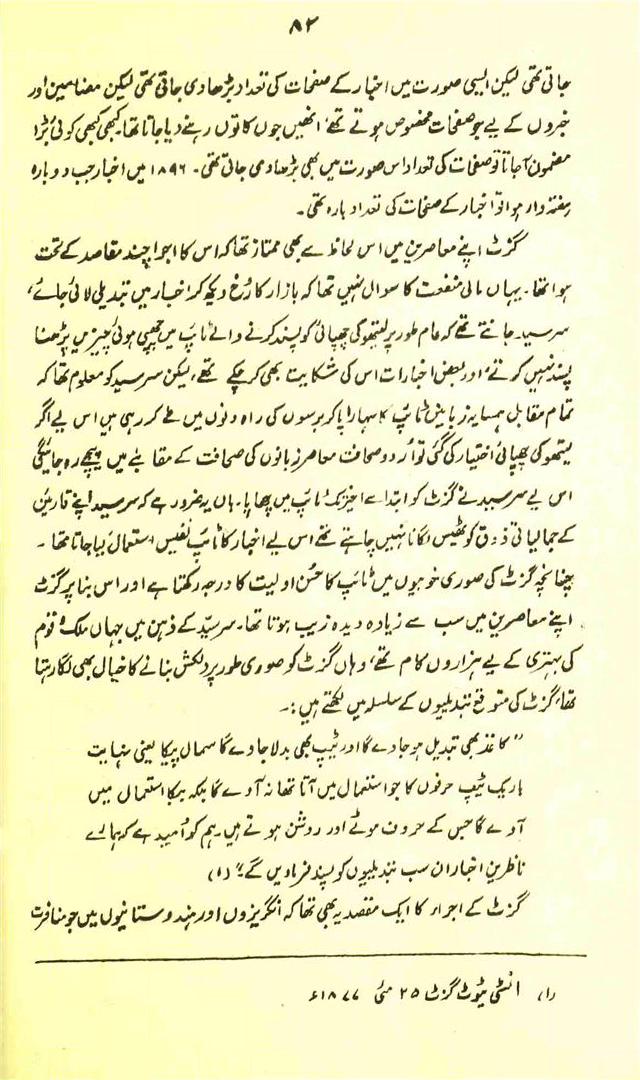 ۸۲
جاتی تھی لیکن ایسی صورت میں اخبار کے صفحات کی تعداد بڑھا دی جاتی تھی لیکن مضامین اور
خبروں کے لیے جو صفحات مخصوص ہوتے تھے انھیں جوں کا توں رہنے دیا جاتا تھا۔ کبھی کبھی کوئی بڑا
مضمون آجاتا تو صفحات کی تعداد اس صورت میں بھی بڑھا دی جاتی تھی۔ ۱۸۹۶ میں اخبار جب دوبارہ
ہفتہ وار ہوا تو اخبار کے صفحات کی تعداد بارہ تھی۔
گزٹ اپنے معاصرین میں اس لحاظ سے بھی ممتاز تھا کہ اس کا اجرا چند مقاصد کے تحت
ہوا تھا۔ یہاں مالی منفعت کا سوال نہیں تھا کہ بازار کا رُخ دیکھ کر اخبار میں تبدیلی لائی جائے،
سرسید جانتے تھے کہ عام طور پر لیتھو کی چھپائی کو پسند کرنے والے ٹائپ میں چھپی ہوئی چیزیں پڑھنا
پسند نہیں کرتے، اور بعض اخبارات اس کی شکایت بھی کرچکے تھے، لیکن سرسید کو معلوم تھا کہ
تمام مقابل ہمسایہ زبانیں ٹائپ کا سہارا پاکر برسوں کی راہ دنوں میں طے کر رہی ہیں اس لیے اگر
لیتھو کی چھپائی اختیار کی گئی تو اُردو صحافت معاصر زبانوں کی صحافت کے مقابلے میں پیچھے رہ جائیگی
اس لیے سرسید نے گزٹ کو ابتدا سے اخیر تک ٹائپ میں چھاپا۔ ہاں یہ ضرور ہے کہ سرسید اپنے قارئین
کے جمالیاتی ذوق کو ٹھیس لگانا نہیں چاہتے تھے اس لیے اخبار کا ٹائپ نفیس استعمال کیا جاتا تھا۔
چنانچہ گزٹ کی صوری خوبیوں میں ٹائپ کا حُسن اولیت کا درجہ رکھتا ہے اور اس بنا پر گزٹ
اپنے معاصرین میں سب سے زیادہ دیدہ زیب ہوتا تھا۔ سرسیّد کے ذہن میں جہاں ملک و قوم
کی بہتری کے لیے ہزاروں کام تھے، وہاں گزٹ کو صوری طور پر دلکش بنانے کا خیال بھی لگا رہتا
تھا، گزٹ کی متوقع تبدیلیوں کے سلسلہ میں لکھتے ہیں:۔
"کاغذ بھی تبدیل ہو جاوے گا اور ٹیپ بھی بدلا جاوے گا سمال پیکا یعنی نہایت
باریک ٹیپ حرفوں کا جو استعمال میں آتا تھا نہ آوے گا بلکہ پیکا استعمال میں
آوے گا جس کے حروف موٹے اور روشن ہوتے ہیں۔ ہم کو اُمید ہے کہ ہمارے
ناظرین اخبار ان سب تبدیلیوں کو پسند فرماویں گے۔" (۱)
گزٹ کے اجراء کا ایک مقصد یہ بھی تھا کہ انگریزوں اور ہندوستانیوں میں جو منافرت
(۱) انسٹی ٹیوٹ گزٹ ۲۵ مئی ۱۸۷۷ء